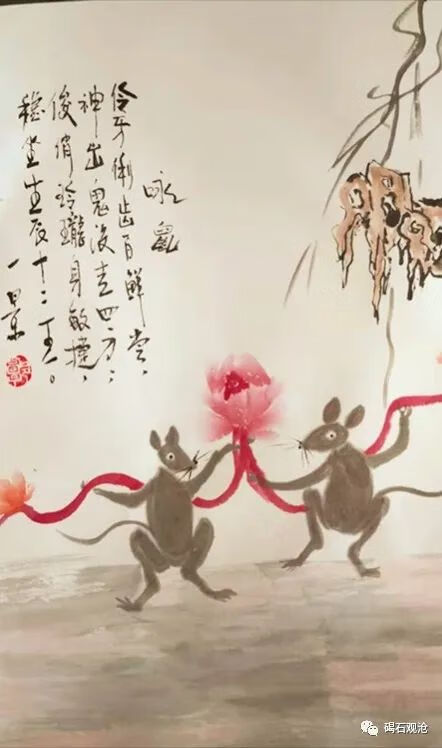 咏鼠
伶牙俐齿百鲜尝，
神出鬼没走四方；
俊俏玲珑身敏捷，
稳坐生辰十二王。
一景
碣石观沧